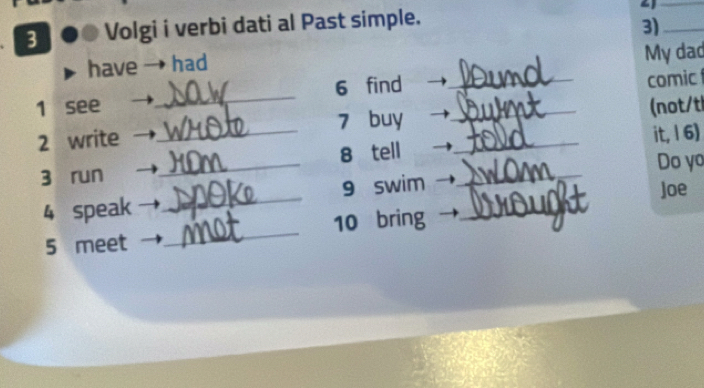 3 Volgi i verbi dati al Past simple.
have → had
1 see → saw
2 write → wrote
3 run → rom
4 speak → spoke
5 meet → met
6 find → found
7 buy → burnt
8 tell → told
9 swim → swom
10 bring → brought
3)
My dad
comic
(not/t
it, I 6)
Do yo
Joe